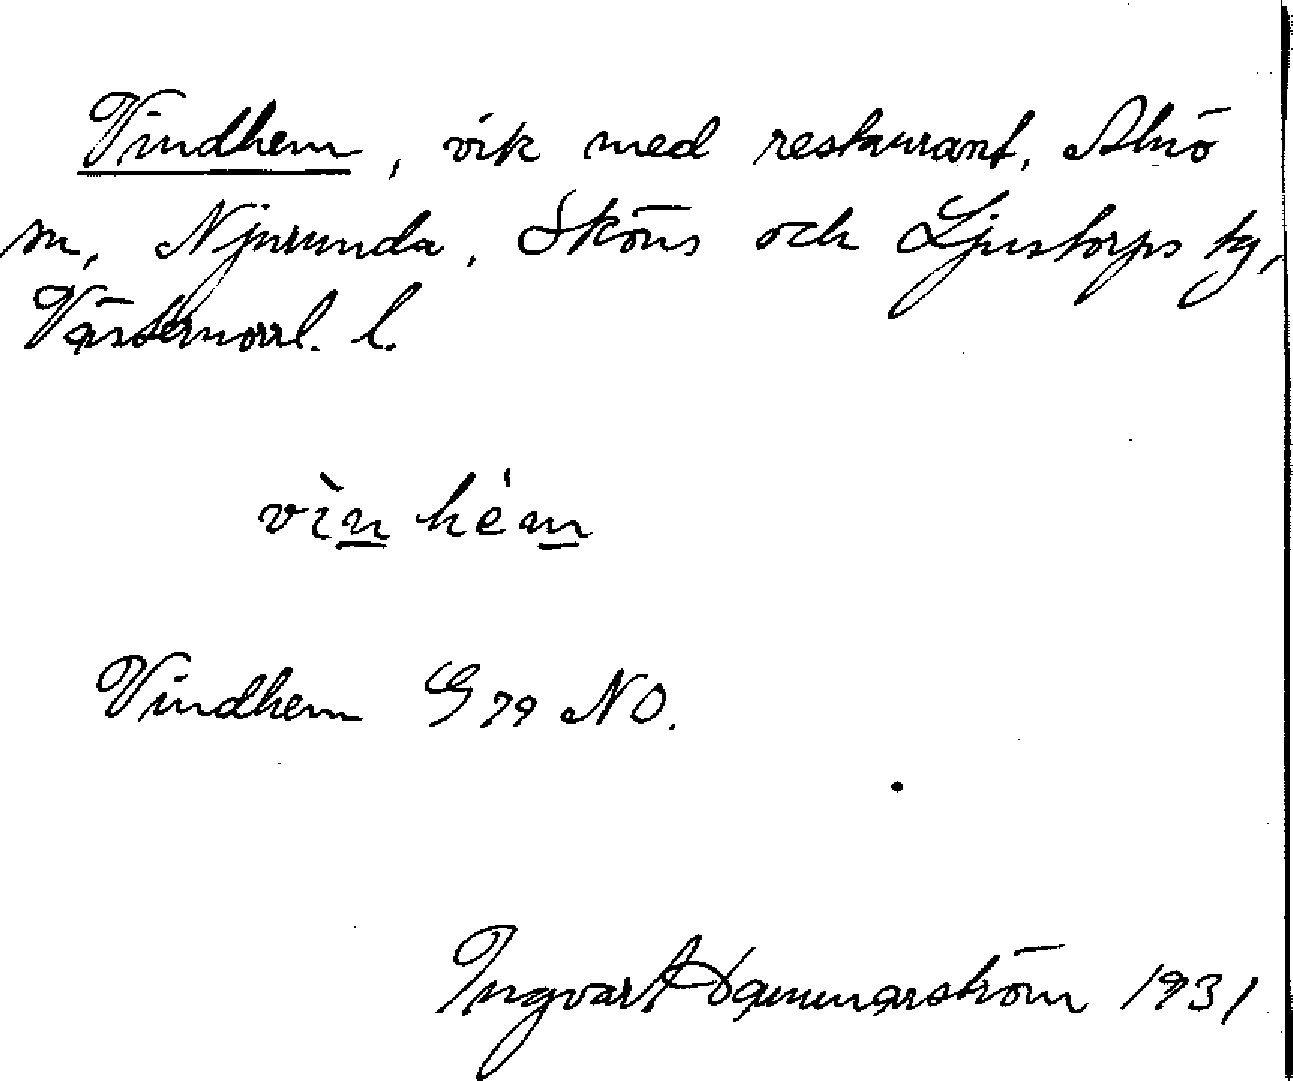 Vindhem, vik med restaurant, Alnö
sn, Njurunda, Sköns och Ljustorps tg,
Västernorrl. l.
vìn hém
Vindhem G 79 NO.
Ingvart Hammarström 1931